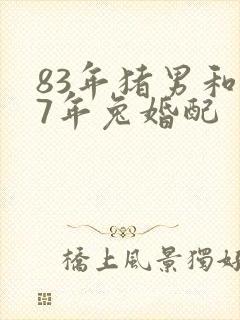 83年猪男和
7年兔婚配
橋上風景獨好